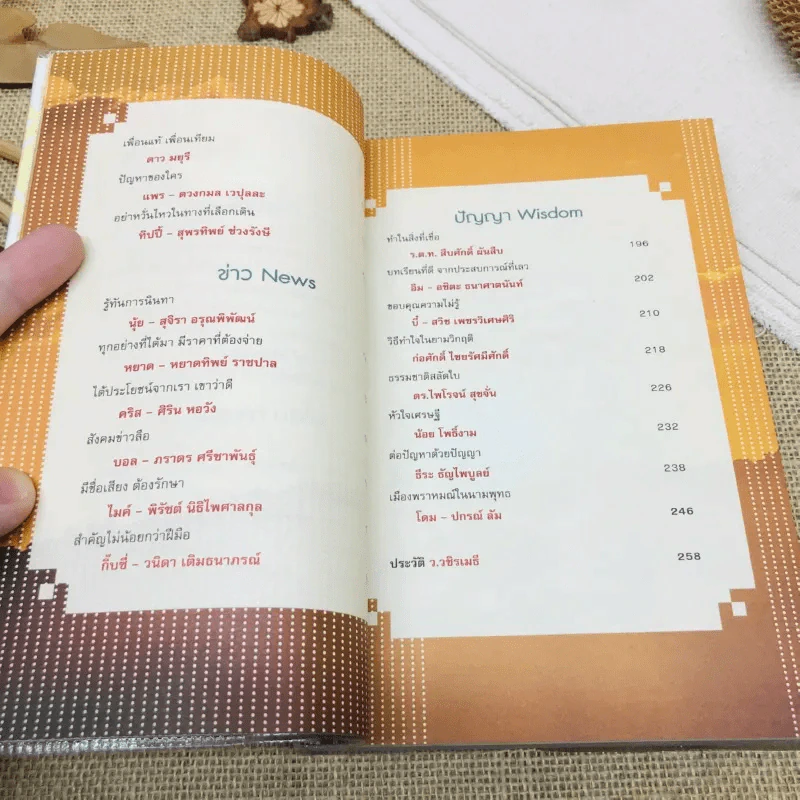 เพื่อนแท้ เพื่อนเทียม
ดาว มยุรี
ปัญหาของใคร
แพร – ดวงกมล เวปุลละ
อย่าหวั่นไหวในทางที่เลือกเดิน
ทิปปี้ – สุพรทิพย์ ช่วงรังษี
ข่าว News
รู้ทันการนินทา
นุ้ย – สุจิรา อรุณพิพัฒน์
ทุกอย่างที่ได้มา มีราคาที่ต้องจ่าย
หยาด – หยาดทิพย์ ราชปาล
ได้ประโยชน์จากเรา เขาว่าดี
คริส – ศิริน หอวัง
สังคมข่าวลือ
บอล – ภราดร ศรีชาพันธุ์
มีชื่อเสียง ต้องรักษา
ไมค์ – พิรัชต์ นิธิไพศาลกุล
สำคัญไม่น้อยกว่าฝีมือ
กิ๊บซี่ – วนิดา เติมธนาภรณ์
ปัญญา Wisdom
ทำในสิ่งที่เชื่อ 196
ร.ต.ท. สืบศักดิ์ ผันสืบ
บทเรียนที่ดี จากประสบการณ์ที่เลว 202
อิม – อชิตะ ธนาศาตนันท์
ขอบคุณความไม่รู้ 210
บี๋ – สวิช เพชรวิเศษศิริ
วิธีทำใจในยามวิกฤติ 218
ก่อศักดิ์ ไชยรัศมีศักดิ์
ธรรมชาติสลัดใบ 226
ดร.ไพโรจน์ สุขจั่น
หัวใจเศรษฐี 232
น้อย โพธิ์งาม
ต่อปัญหาด้วยปัญญา 238
ธีระ ธัญไพบูลย์
เมืองพราหมณ์ในนามพุทธ 246
โดม – ปกรณ์ ลัม
ประวัติ ว.วชิรเมธี 258